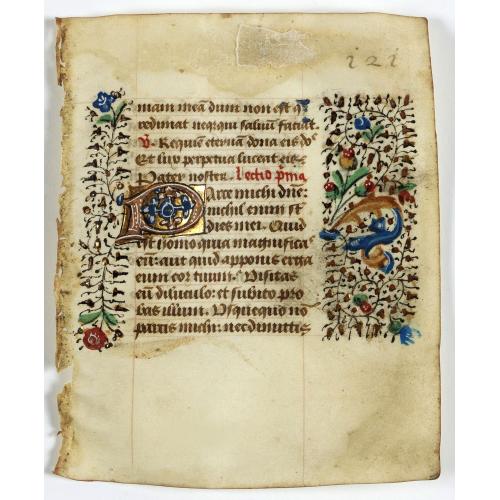 121
niam meā dum non est q̄
redimat neq; qui saluū faciat.
V. Requiē eternam dona eis do
Et lux perpetua luceat eis.
Pater noster. Lectio p̄ma
Parce michi dn̄e:
michil enim sūt
dies mei. Quid
est homo quia magnificas
eū: aut quid apponis erga
eum cor tuum. Visitas
eū diluculo: et subito pro
bas illum. Usquequo nō
parcis michi: nec dimittis